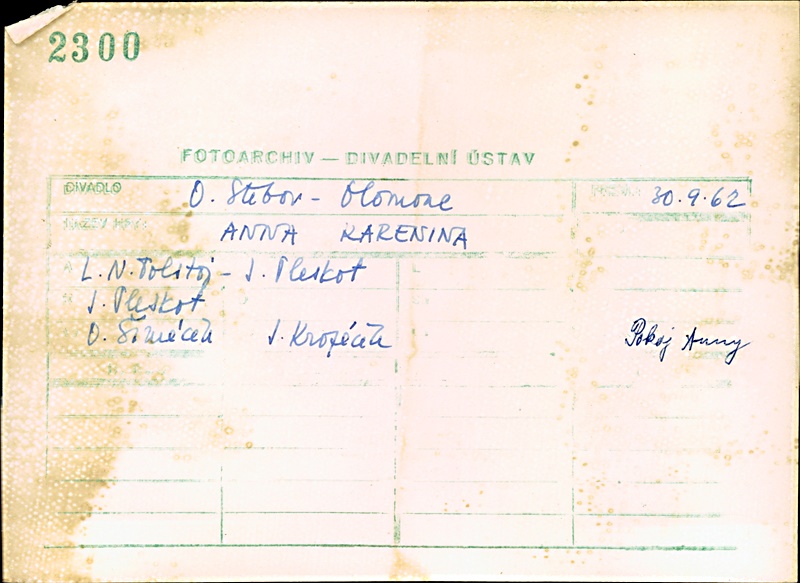 2300
FOTOARCHIV — DIVADELNÍ ÚSTAV
DIVADLO O. Stibor - Olomouc 30.9.62
NÁZEV HRY: ANNA KARENINA
L. N. Tolstoj - J. Pleskot
J. Pleskot
O. Šimáček J. Krofáček Pokoj Anny